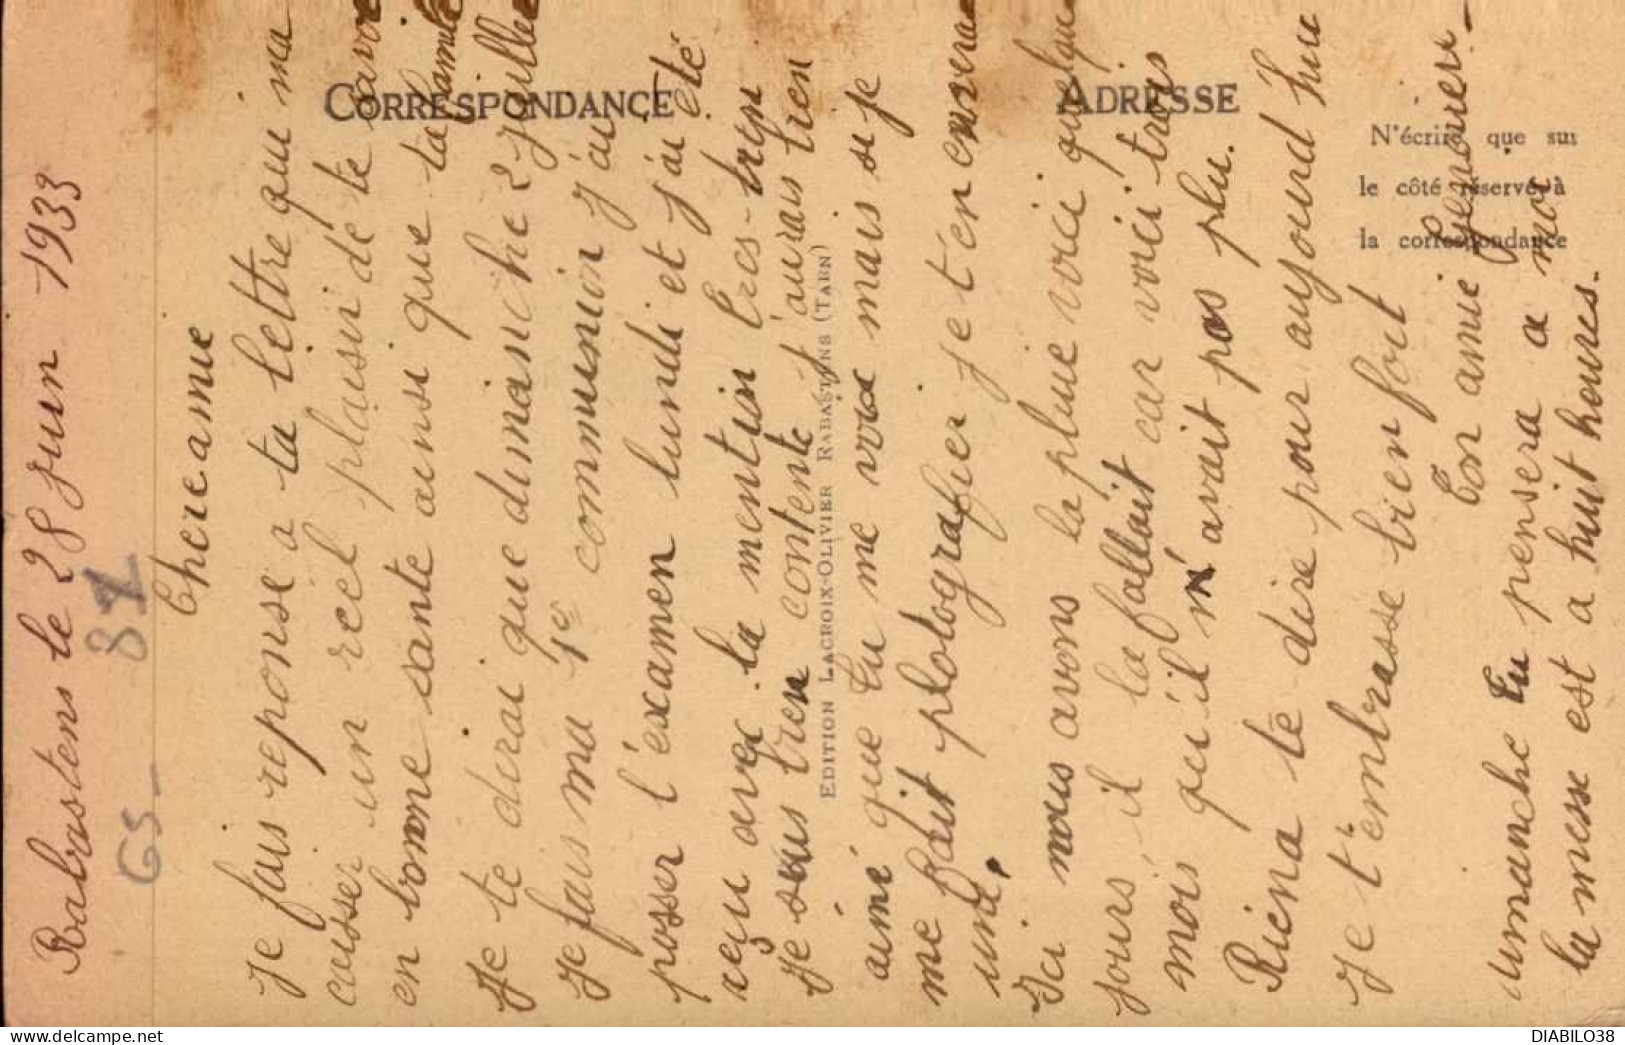 Rabastens le 28 juin 1933
81
GS -
Chère amie
Je fais reponse a ta lettre qui ma
causer un réel plaisir de te savoir
en bonne santé ainsi que ta famille
Je te dirai que dimanche 2 juillet
Je fais ma 1e communion j'ai
passer l'éxamen lundi et j'ai été
reçu avec la mention très-bien
Je suis bien contente j'aurais bien
aimé que tu me vois mais si je
me fait plotografier je t'en enverai
une.
Ici nous avons la pluie voici quelque
jours il la fallait car voici trois
mois qu'il n'avait pas plu.
Rien a te dire pour aujourd'hui
Je t'embrasse bien fort
Ton amie
dimanche tu pensera a moi
la messe est a huit heures.
CORRESPONDANCE
ADRESSE
N'écrire que sur
le côté réservé à
la correspondance
EDITION LACROIX-OLIVIER RABASTENS (TARN)
DIABILO38